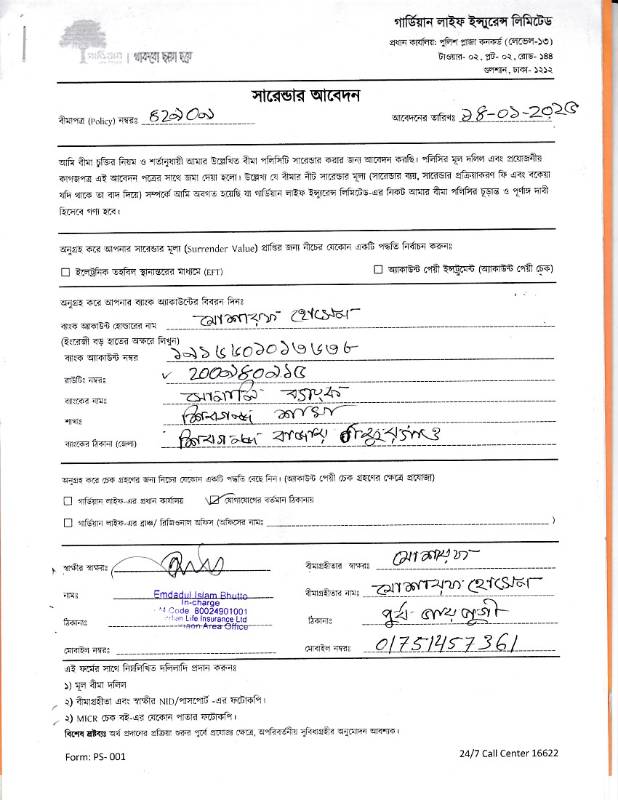 গার্ডিয়ান লাইফ ইন্স্যুরেন্স লিমিটেড
প্রধান কার্যালয়: পুলিশ প্লাজা কনকর্ড (লেভেল-১৩)
টাওয়ার- ০২, প্লট- ০২, রোড- ১৪৪
গুলশান, ঢাকা- ১২১২
গার্ডিয়ান
সারেন্ডার আবেদন
বীমাপত্র (Policy) নম্বরঃ
আবেদনের তারিখঃ ১৪-০১-২০২৫
আমি বীমা চুক্তির নিয়ম ও শর্তানুযায়ী আমার উল্লেখিত বীমা পলিসিটি সারেন্ডার করার জন্য আবেদন করছি। পলিসির মূল দলিল এবং প্রয়োজনীয়
কাগজপত্র এই আবেদন পত্রের সাথে জমা দেয়া হলো। উল্লেখ্য যে বীমার নীট সারেন্ডার মূল্য (সারেন্ডার ব্যয়, সারেন্ডার প্রক্রিয়াকরণ ফি এবং বকেয়া
যদি থাকে তা বাদ দিয়ে) সম্পর্কে আমি অবগত হয়েছি যা গার্ডিয়ান লাইফ ইন্স্যুরেন্স লিমিটেড-এর নিকট আমার বীমা পলিসির চূড়ান্ত ও পূর্ণাঙ্গ দাবী
হিসেবে গণ্য হবে।
অনুগ্রহ করে আপনার সারেন্ডার মূল্য (Surrender Value) প্রাপ্তির জন্য নীচের যেকোন একটি পদ্ধতি নির্বাচন করুনঃ
ইলেক্ট্রনিক তহবিল স্থানান্তরের মাধ্যমে (EFT)
অ্যাকাউন্ট পেয়ী ইন্সট্রুমেন্ট (অ্যাকাউন্ট পেয়ী চেক)
অনুগ্রহ করে আপনার ব্যাংক অ্যাকাউন্টের বিবরন দিনঃ
ব্যাংক অ্যাকাউন্ট হোল্ডারের নাম মোশারফ হোসেন
(ইংরেজী বড় হাতের অক্ষরে লিখুন)
ব্যাংক অ্যাকাউন্ট নম্বর
রাউটিং নম্বরঃ
ব্যাংকের নামঃ সোনালি ব্যাংক
শাখাঃ শিবগঞ্জ শাখা
ব্যাংকের ঠিকানা (জেলা) শিবগঞ্জ বাজার ঠাকুরগাঁও
অনুগ্রহ করে চেক গ্রহণের জন্য নিচের যেকোন একটি পদ্ধতি বেছে নিন। (অ্যাকাউন্ট পেয়ী চেক গ্রহণের ক্ষেত্রে প্রযোজ্য)
গার্ডিয়ান লাইফ-এর প্রধান কার্যালয়
যোগাযোগের বর্তমান ঠিকানায়
গার্ডিয়ান লাইফ-এর ব্রাঞ্চ/ রিজিওনাল অফিস (অফিসের নামঃ )
স্বাক্ষীর স্বাক্ষরঃ
বীমাগ্রহীতার স্বাক্ষরঃ মোশারফ
নামঃ Emdadul Islam Bhutto
In-charge
বীমাগ্রহীতার নামঃ মোশারফ হোসেন
Code 80024901001
Life Insurance Ltd
ঠিকানাঃ Area Office
ঠিকানাঃ পূর্ব
মোবাইল নম্বরঃ
মোবাইল নম্বরঃ 01751457361
এই ফর্মের সাথে নিম্নলিখিত দলিলাদি প্রদান করুনঃ
১) মূল বীমা দলিল
২) বীমাগ্রহীতা এবং স্বাক্ষীর NID/পাসপোর্ট -এর ফটোকপি।
২) MICR চেক বই-এর যেকোন পাতার ফটোকপি।
বিশেষ দ্রষ্টব্যঃ অর্থ প্রদানের প্রক্রিয়া শুরুর পূর্বে প্রযোজ্য ক্ষেত্রে, অপরিবর্তনীয় সুবিধাগ্রহীর অনুমোদন আবশ্যক।
Form: PS- 001
24/7 Call Center 16622